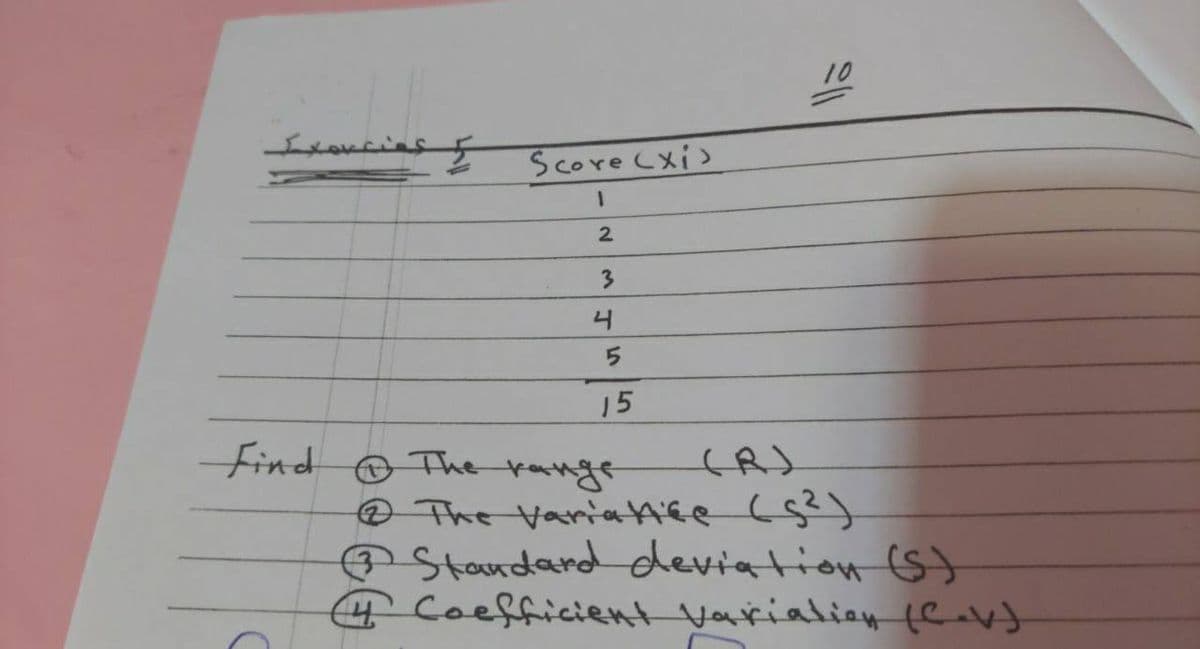 10
Exercies 5
Score (xi)
1
2
3
4
5
15
Find ① The range (R)
② The variance (S²)
③ Standard deviation (S)
④ Coefficient Variation (C.V)